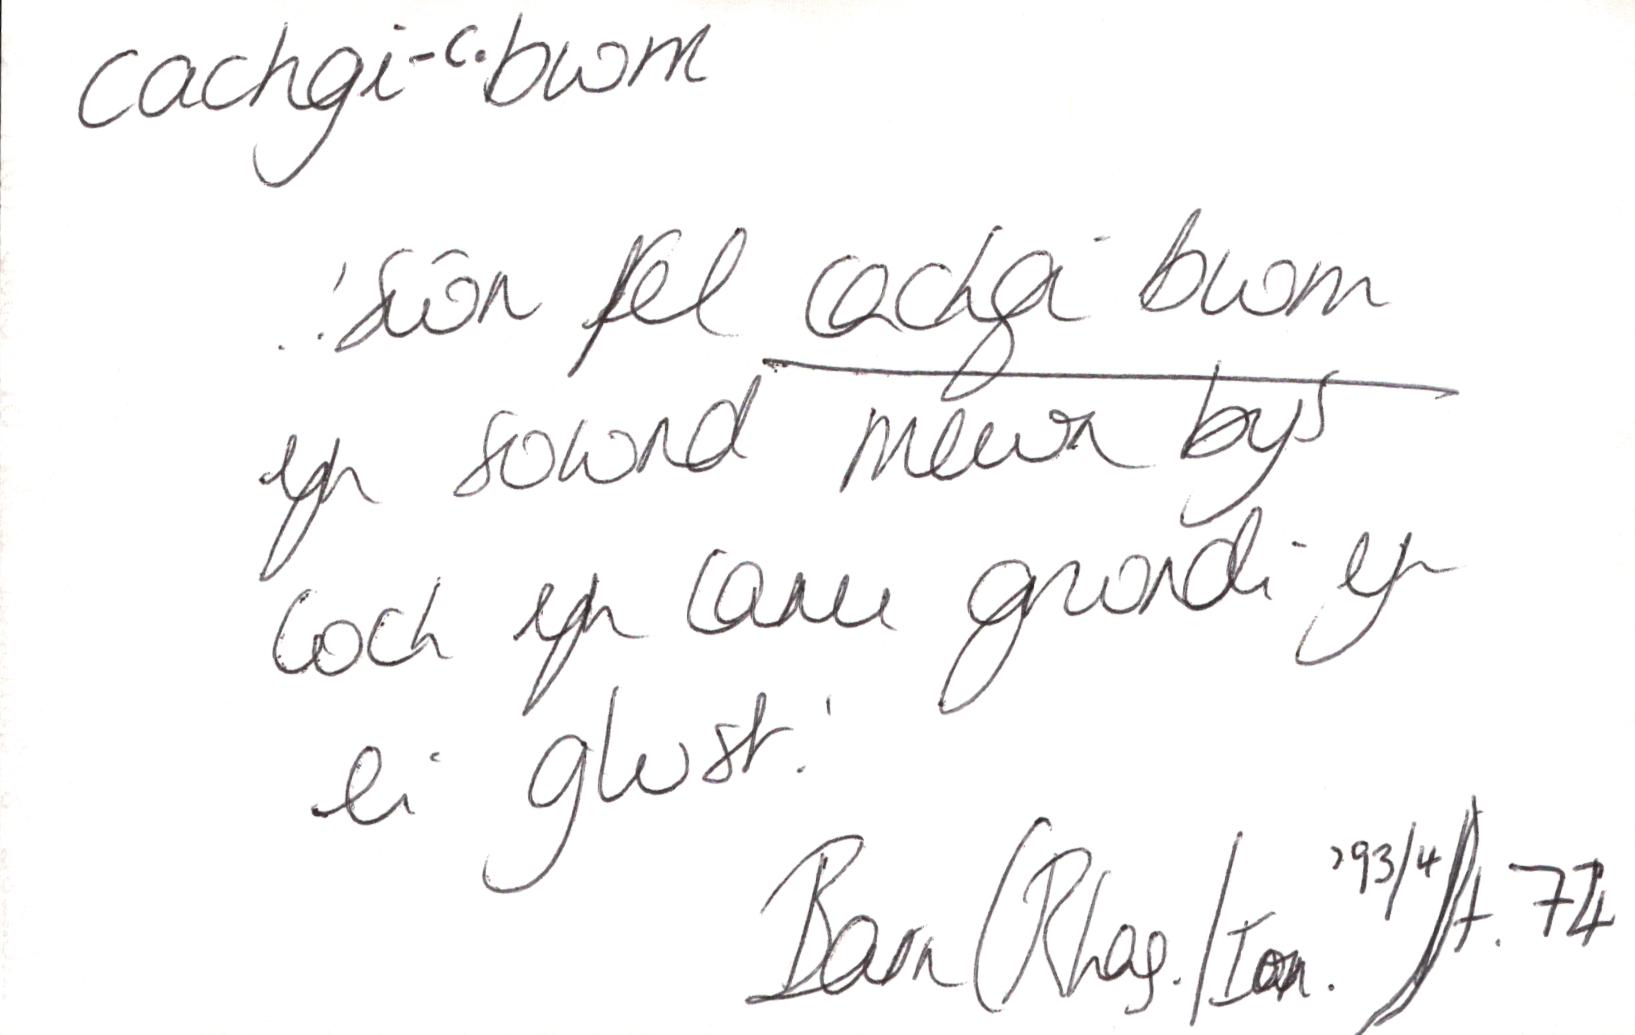 cachgi-c.bwm
..'sŵn fel cachgi bwm
yn sownd mewn bys
coch yn canu grwndi yn
ei glust.'
Barn (Rhag./Ion. '93/4) t. 74